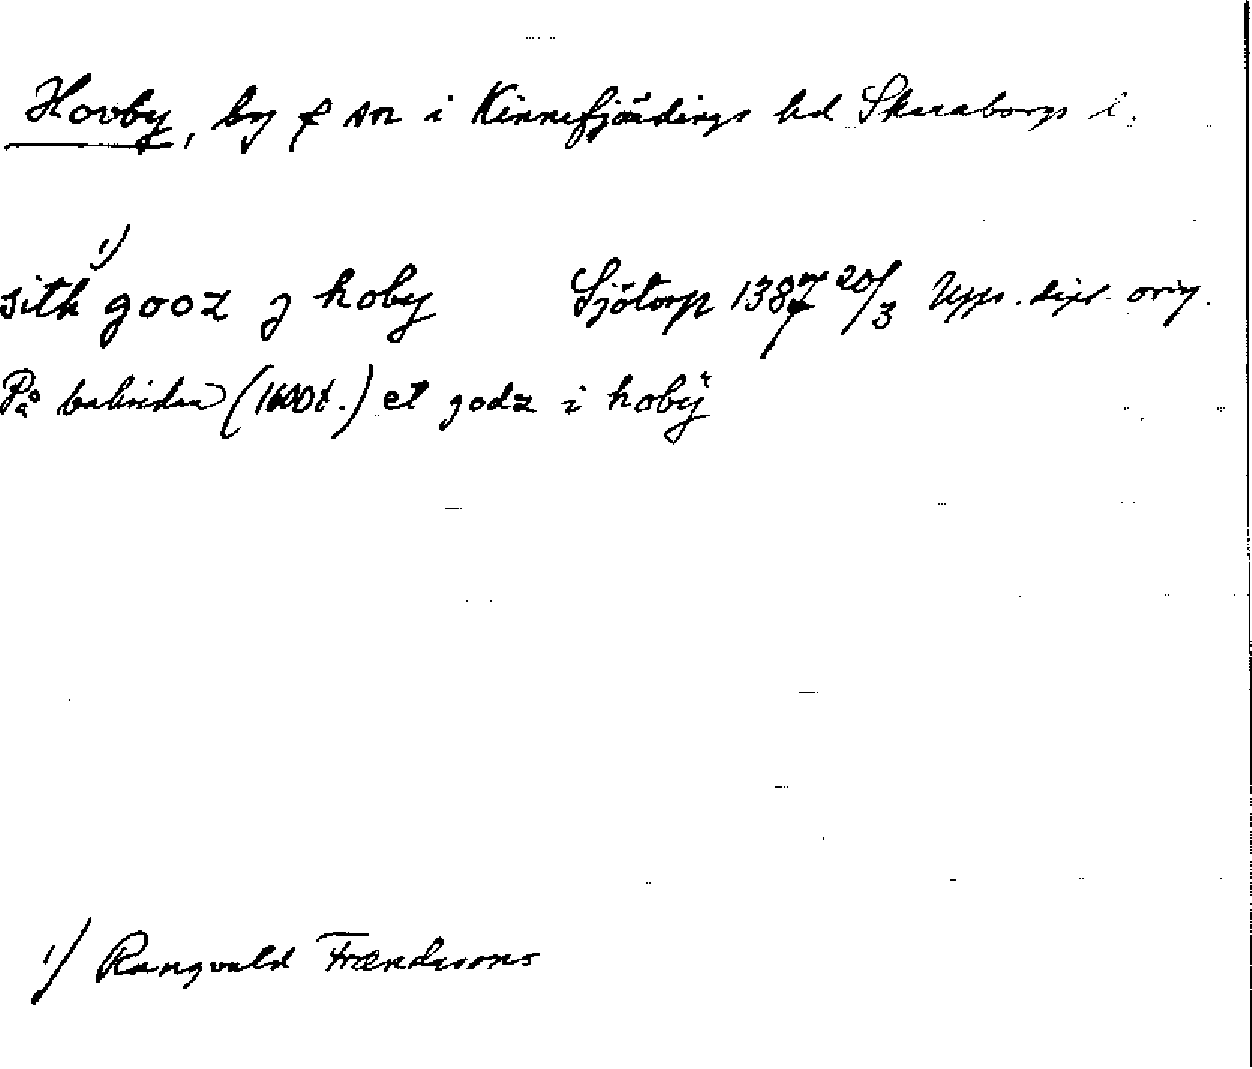 Hovby, by o sn i Kinnefjärdings hd Skaraborgs l.
sith 1) gooz j hoby Sjötorp 1387 20/3 Upps. dipl. orig.
På baksidan (1600t.) et godz i hobÿ
1/ Rangvald Frændesons